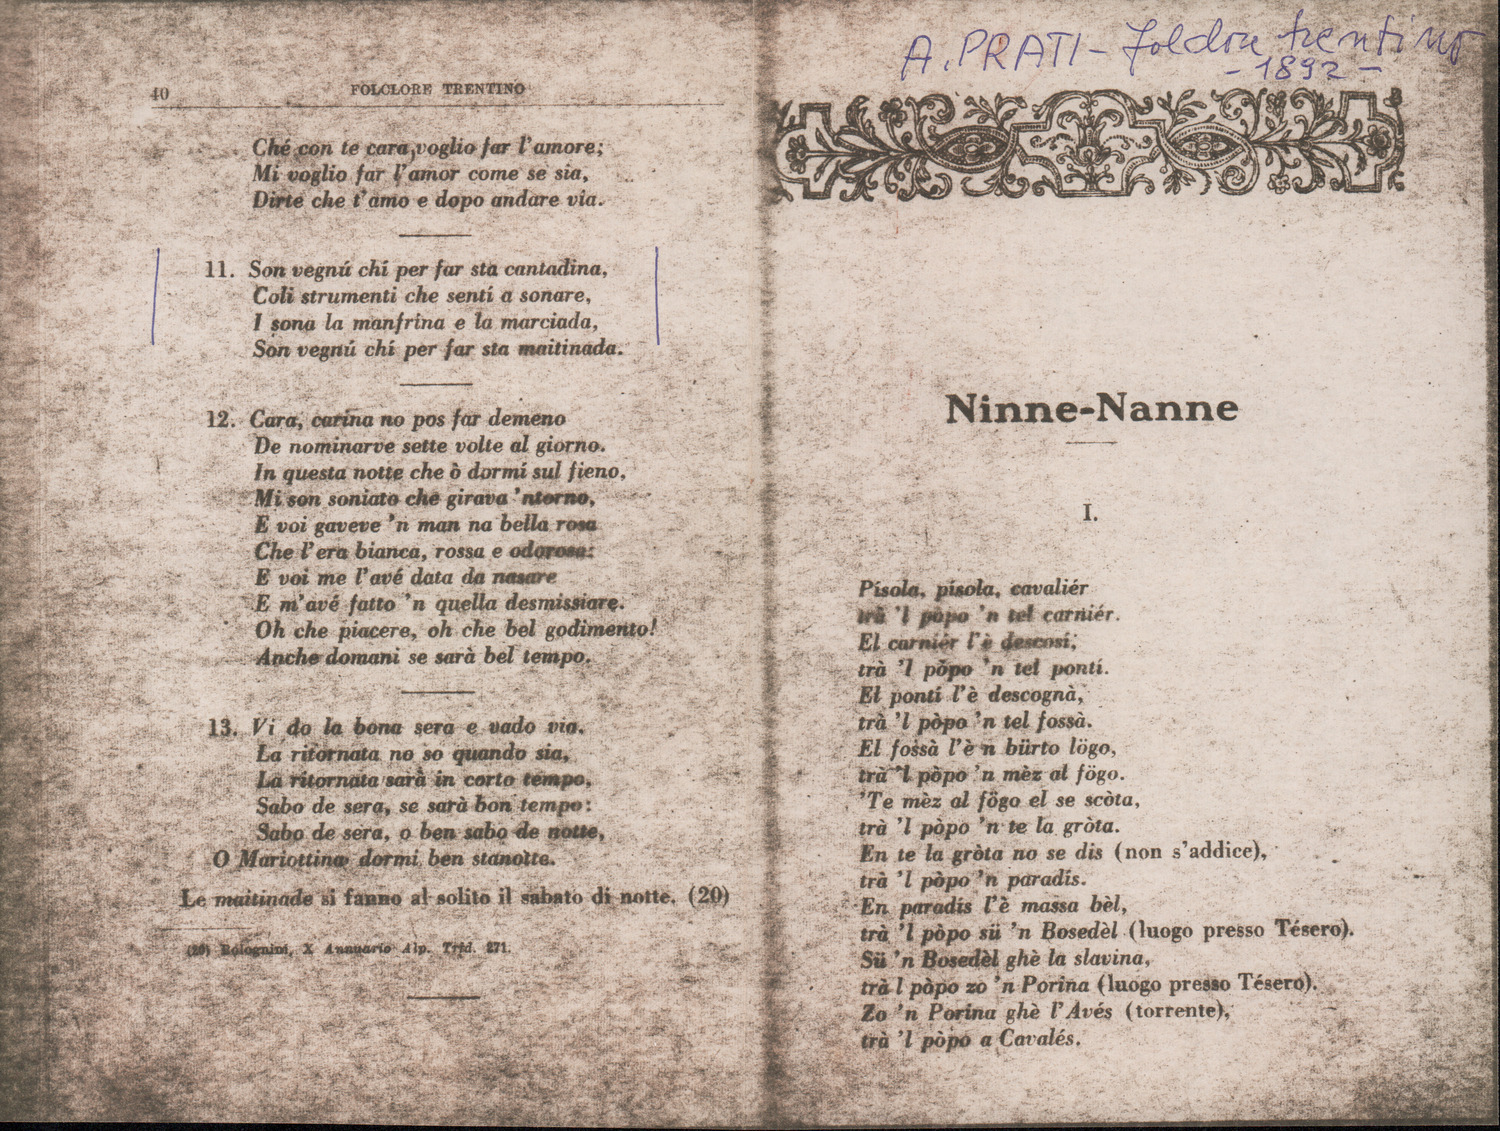 40
FOLCLORE TRENTINO
Ché con te cara, voglio far l'amore;
Mi voglio far l'amor come se sia,
Dirte che t'amo e dopo andare via.
11. Son vegnú chí per far sta cantadina,
Coli strumenti che sentí a sonare,
I sona la manfrina e la marciada,
Son vegnú chí per far sta maitinada.
12. Cara, carina no pos far demeno
De nominarve sette volte al giorno.
In questa notte che ò dormí sul fieno,
Mi son soniato che girava 'ntorno,
E voi gaveve 'n man na bella rosa
Che l'era bianca, rossa e odorosa:
E voi me l'avé data da nasare
E m'avé fatto 'n quella desmissiare.
Oh che piacere, oh che bel godimento!
Anche domani se sarà bel tempo.
13. Vi do la bona sera e vado via.
La ritornata no so quando sia,
La ritornata sarà in corto tempo,
Sabo de sera, se sarà bon tempo:
Sabo de sera, o ben sabo de notte,
O Mariottina dormi ben stanotte.
Le maitinade si fanno al solito il sabato di notte. (20)
(20) Bolognini, X Annuario Alp. Trid. 271.
A. PRATI - Folclore trentino
- 1892 -
Ninne-Nanne
I.
Písola, písola, cavaliér
trà 'l pòpo 'n tel carniér.
El carniér l'è descosí;
trà 'l pòpo 'n tel pontí.
El pontí l'è descognà,
trà 'l pòpo 'n tel fossà.
El fossà l'è n bürto lögo,
trà 'l pòpo 'n mèz al fögo.
'Te mèz al fögo el se scòta,
trà 'l pòpo 'n te la gròta.
En te la gròta no se dis (non s'addice),
trà 'l pòpo 'n paradís.
En paradís l'è massa bèl,
trà 'l pòpo sü 'n Bosedèl (luogo presso Tésero).
Sü 'n Bosedèl ghè la slavina,
trà l pòpo zo 'n Porina (luogo presso Tésero).
Zo 'n Porina ghè l'Avés (torrente),
trà 'l pòpo a Cavalés.